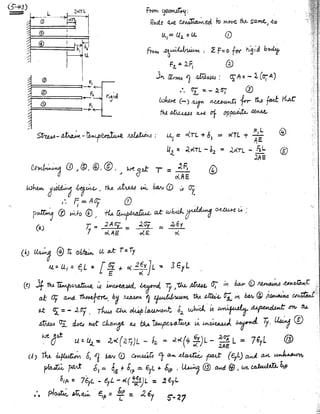 (5-27)
From geometry:
Rods are constrained to move the same, so
u₁ = u₂ = u ①
From equilibrium, ΣF=0 for rigid body
F₂ = 2F₁ ②
In terms of stresses: σ₂A = -2(σ₁A)
∴ σ₂ = -2σ₁ ③
where (-) sign accounts for the fact that
the stresses are of opposite sense.
L
2αTL
F₁
F₂
F₁
rigid
Stress-strain-temperature relations: u₁ = αTL + δ₁ = αTL + F₁L/AE ④
u₂ = 2αTL - δ₂ = 2αTL - F₂L/3AE ⑤
Combining ①, ②, ④, ⑤, we get T = 2F₁/αAE ⑥
when yielding begins, the stress in bar ① is σy
∴ F₁ = Aσy ⑦
putting ⑦ into ⑥, the temperature at which yielding occurs is:
(a) Ty = 2Aσy/αAE = 2σy/αE = 2εy/α
(b) Using ④ to obtain u at T=Ty
u = u₁ = εyL = [σy/E + α 2εy/α]L = 3εyL
(c) If the temperature is increased beyond Ty, the stress σ₁ in bar ① remains constant
at σy and therefore, by reason of equilibrium the stress σ₂ in bar ② remains constant
at σ₂ = -2σy. Thus the displacement δ₂ which is uniquely dependent on the
stress σ₂ does not change as the temperature is increased beyond Ty. Using ⑤
we get
u = u₂ = 2α(2Ty)L - δ₂ = 2α(4 εy/α)L - 2σyA L/2AE = 7εyL ⑧
(d) The deflection δ₁ of bar ① consists of an elastic part (εyL) and an unknown
plastic part δ₁ = δe + δ₁p = εyL + δp. Using ④ and ⑧, we calculate δp
δ₁p = 7εyL - εyL - α(4εy/α)L = 2εyL
∴ Plastic strain ε₁p = δp/L = 2εy
5-27